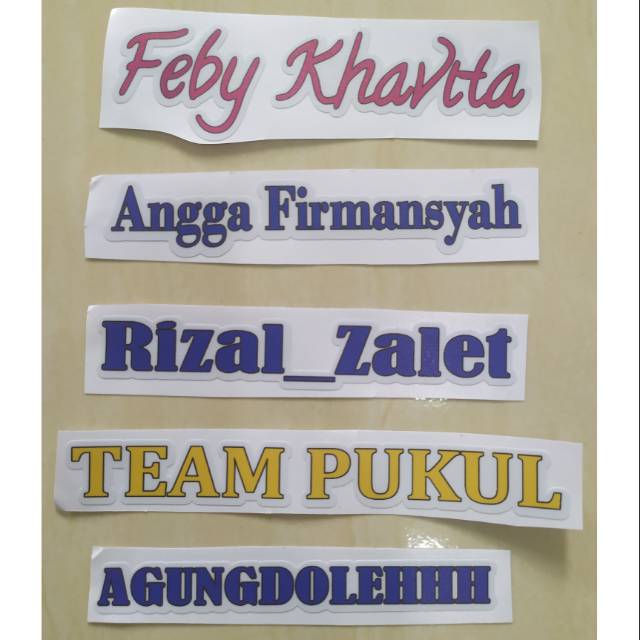 Feby Khavita
Angga Firmansyah
Rizal_Zalet
TEAM PUKUL
AGUNGDOLEHHH